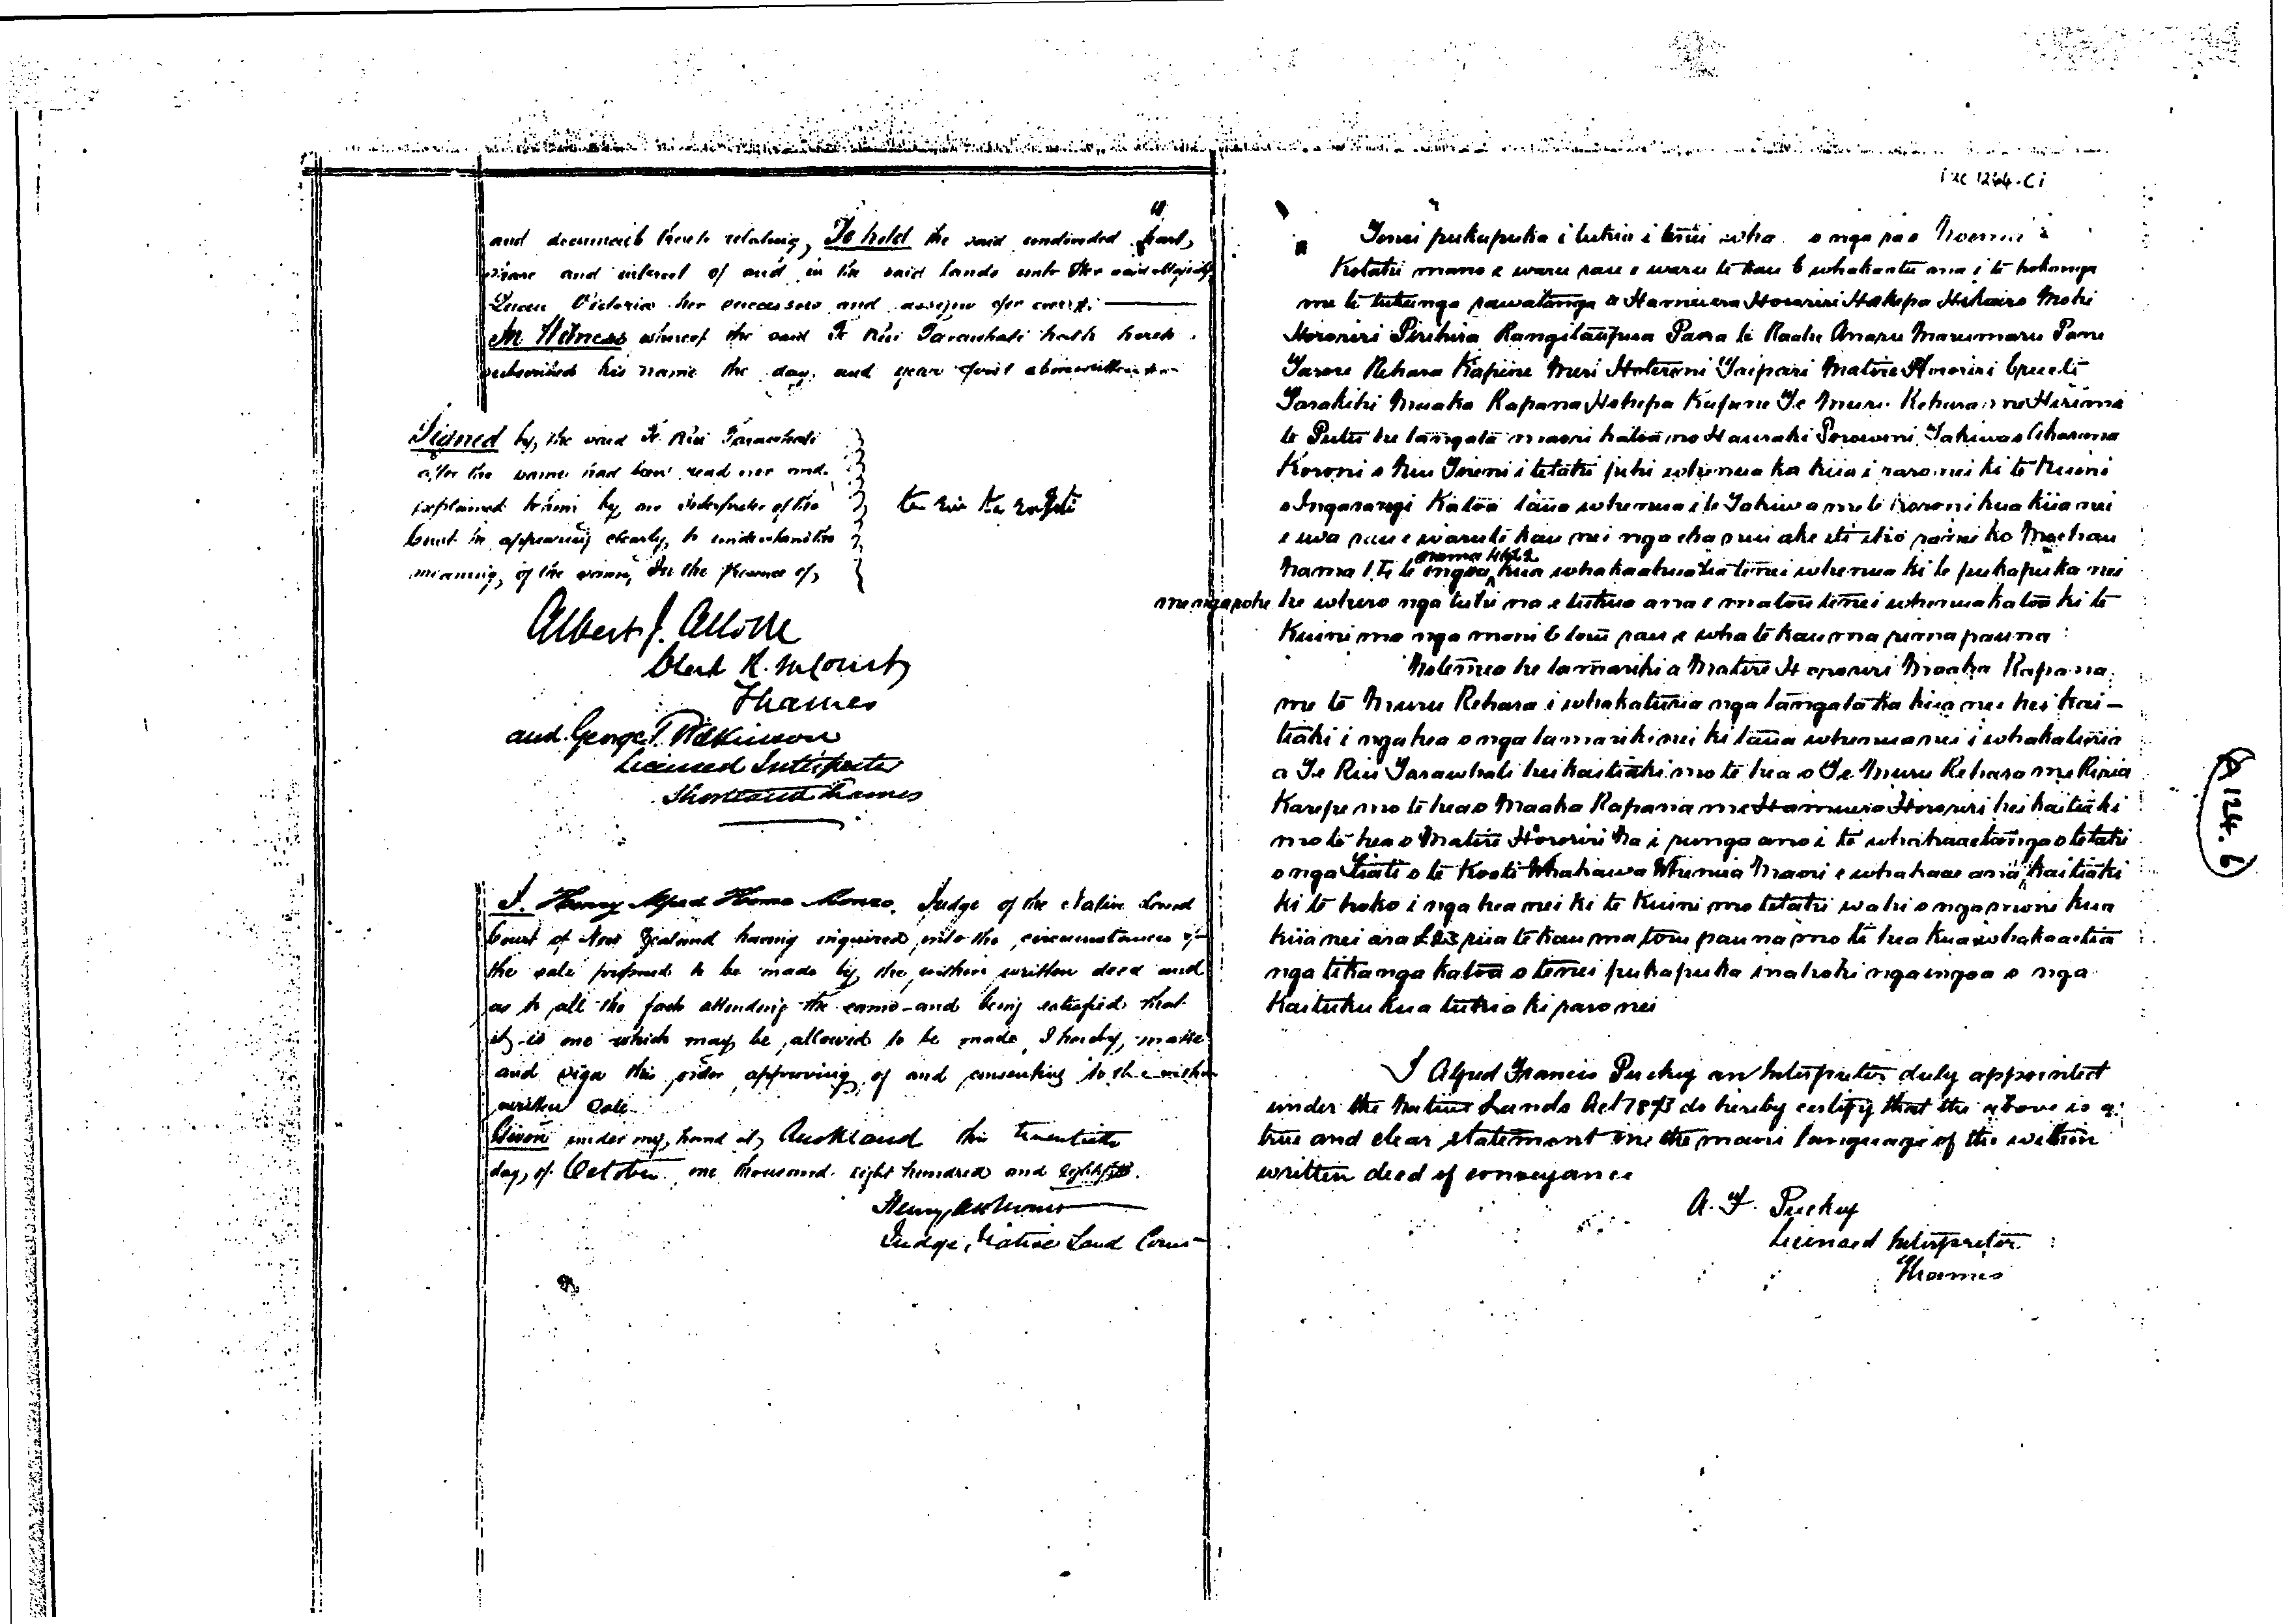 and documents thereto relating, To hold the said undivided part,
share and interest of and in the said lands unto Her said Majesty
Queen Victoria her successors and assigns for ever
In Witness whereof the said Te Riu Tarawhati hath hereto
subscribed his name the day and year first abovewritten
Signed by the said Te Riu Tarawhati
after the same had been read over and
explained to him by an Interpreter of the
Court he appearing clearly to understand the
meaning of the same, In the presence of
Albert J. Allom
Clerk R. M. Court
Thames
and George T. Wilkinson
Licensed Interpreter
Shortland Thames
I. Henry Alfred Home Monro, Judge of the Native Land
Court of New Zealand having inquired into the circumstances of
the sale proposed to be made by the within written deed and
as to all the facts attending the same and being satisfied that
it is one which may be allowed to be made, I hereby make
and sign this order approving of and consenting to the within
written Sale.
Given under my hand at Auckland this twentieth
day of October one thousand eight hundred and eighty
Judge, Native Land Court
Tenei pukapuka i tuhia i tenei wha o nga ra o
Kotahi mano e waru rau e waru te kau e whakaatu ana i te hokonga
me te tukunga rawatanga a Hamiuera Hororirii Hakepa Mohi
Hororirii Pirihira Rangitaupua Paora te Raahu Anaru Marumaru Pane
Tarore Rehara Kapene Meri Hoterini Taipari Matire Hororirii Erueti
Tarakihi Maaka Rapana Hohepa Kapene Te Muru Rehara me Hirima
te Putu he tangata maori katoa no Hauraki Porowini Takiwa o Akarana
Koroni o Niu Tireni i tetahi pihi whenua ka kiia i raro nei ki te Kuini
o Ingarangi Katoa taua whenua i te Takiwa me te koroni kua kiia nei
e iwa rau e waru te kau nei nga eka nui ake iti iho ranei ko
nama 1 te ingoa nama 4622 kua whakaahuatia tenei whenua ki te pukapuka nei
me nga rohe he whero nga tuhi na e tukua ana e matou tenei whenua katoa ki te
Kuini mo nga moni e toru rau e wha te kau ma rima pauna
Notemea he tamariki a Matire Hororirii Maaka Rapana
me te Muru Rehara i whakaturia nga tangata ka kiia nei hei kai-
tiaki i nga hea o nga tamariki nei ki taua whenua nei i whakaturia
a Te Riu Tarawhati hei kaitiaki mo te hea o Te Muru Rehara me Riria
Karepe mo te hea o Maaka Rapana me Hamiuera Hororirii hei kaitiaki
mo te hea o Matire Hororirii Na i runga ano i te whakaaetanga o tetahi
o nga Tiati o te Kooti Whakawa Whenua Maori e whakaae ana kaitiaki
ki te hoko i nga hea nei ki te Kuini mo tetahi wahi o nga moni kua
kiia nei ara £23 rua te kau ma toru pauna mo te hea kua whakaaetia
nga tikanga katoa o tenei pukapuka inahoki nga ingoa o nga
Kaituku kua tuhia ki raro nei
I Alfred Francis Puckey an Interpreter duly appointed
under the Native Lands Act 1873 do hereby certify that the above is a
true and clear statement in the maori language of the within
written deed of conveyance
A. F. Puckey
Licensed Interpreter
Thames